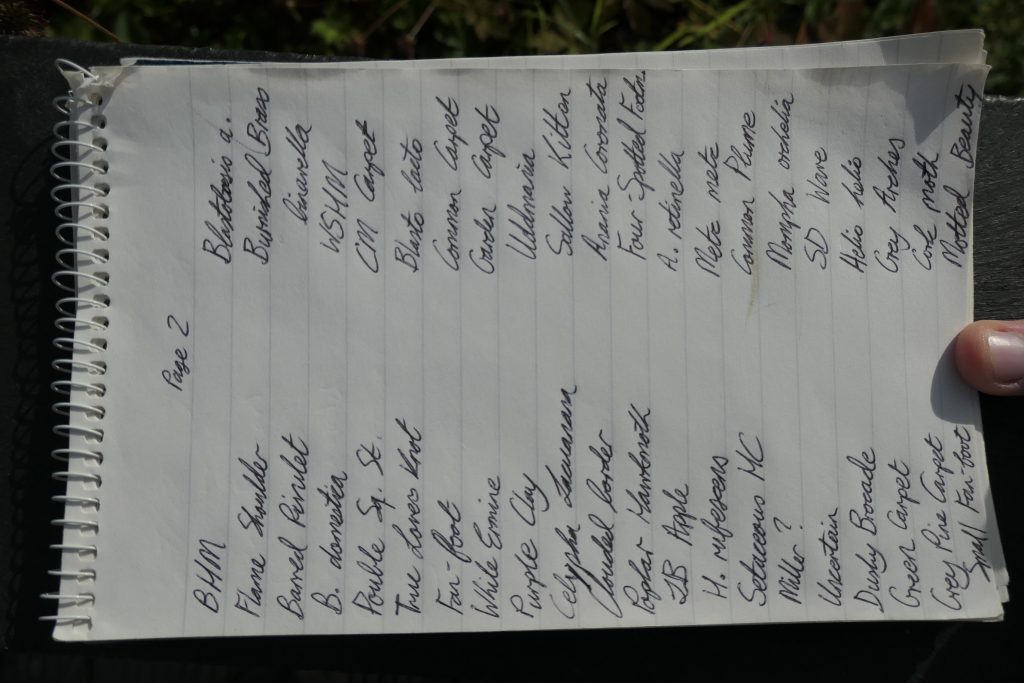 Page 2
BHM
Flame Shoulder
Barred Rivulet
B. domestica
Double Sq. St.
True Lovers Knot
Fan-foot
White Ermine
Purple Clay
Celypha
Clouded border
Poplar Hawkmoth
LB Apple
H. rufescens
Setaceous HC
Miller?
Uncertain
Dusky Brocade
Green Carpet
Grey Pine Carpet
Small Fan-foot
Blastobasis a.
Burnished Brass
WSHM
CM Carpet
Blasto
Common Carpet
Garden Carpet
Udmania
Sallow Kitten
Anania Coronata
Four Spotted
A. retinella
Meta meta
Common Plume
Mompha
SD Wave
Helio helio
Grey Arches
moth
Mottled Beauty